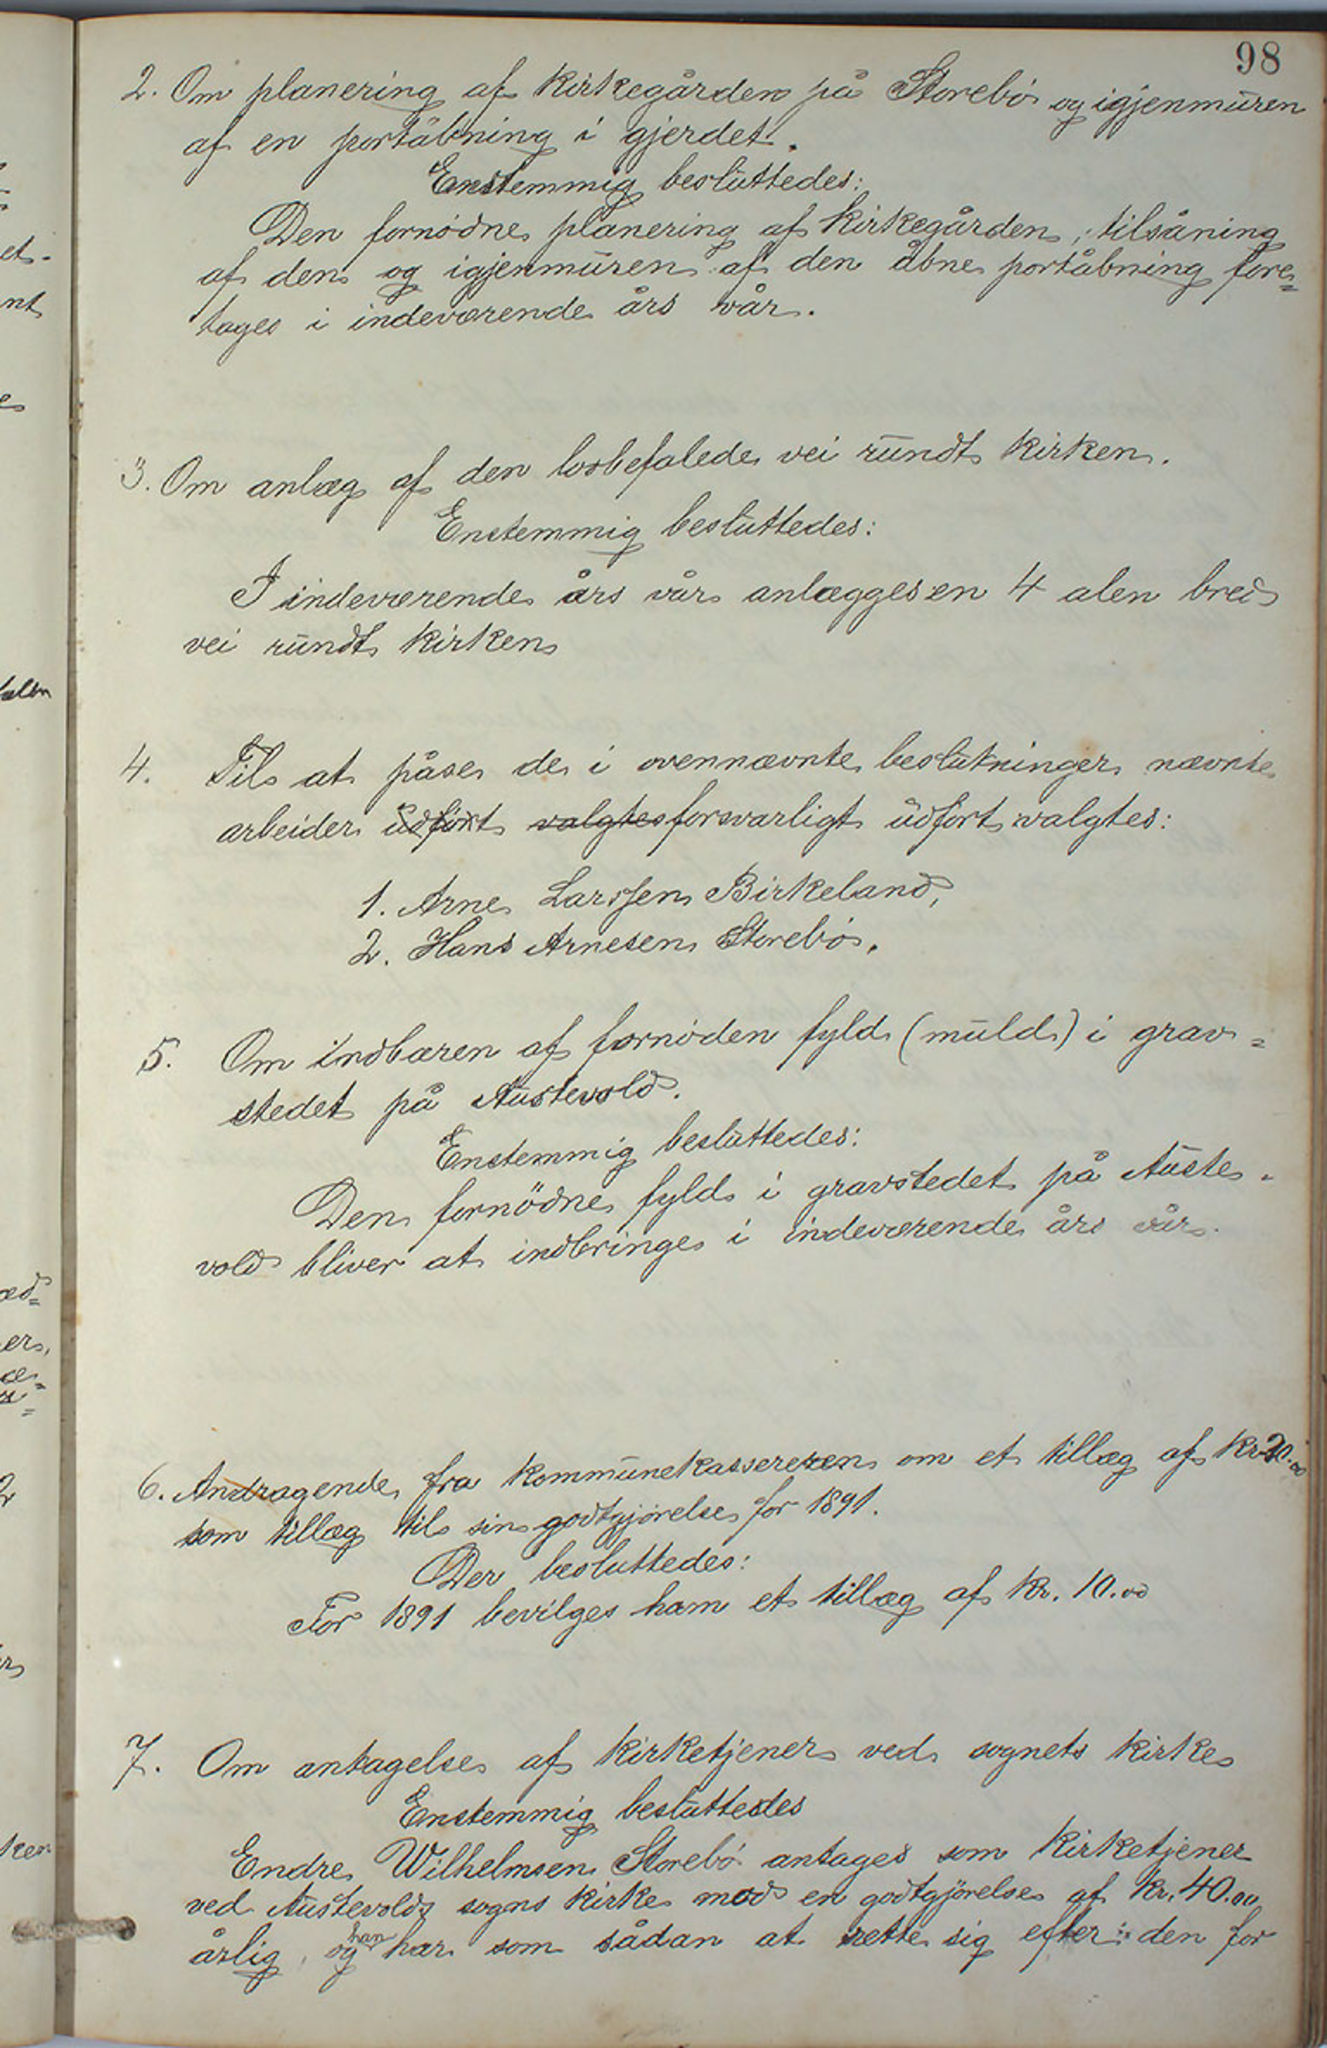 98
2. Om planering af kirkegården på Storebø og igjenmuren
af en portåbning i gjerdet.
Enstemmig besluttedes:
Den fornødne planering af kirkegården, tilsåning
af den og igjenmuren af den åbne portåbning fore=
tages i indeværende års vår.
3. Om anlæg af den lovbefalede vei rundt kirken.
Enstemmig besluttedes:
I indeværende års vår anlægges en 4 alen bred
vei rundt kirken
4. Til at påse de i ovennævnte beslutninger nævnte
arbeider udført valgtes forsvarligt udført valgtes:
1. Arne Larssen Birkeland,
2. Hans Arnesen Storebø.
5. Om indbæren af fornøden fyld (muld) i grav=
stedet på Austevold.
Enstemmig besluttedes:
Den fornödne fyld i gravstedet på Auste-
vold bliver at indbringe i indeværende års vår.
6. Andragende fra kommunekassereren om et tillæg af kr 20.00
som tillæg til sin godtgjørelse for 1891.
Der besluttedes:
For 1891 bevilges ham et tillæg af kr. 10.00
7. Om antagelse af kirketjener ved sognets kirke
Enstemmig besluttedes
Endre Wilhelmsen Storebö antages som kirketjener
ved Austevolds sogns kirke mod en godtgjörelse af kr. 40.00
årlig, og han har som sådan at rette sig efter den for